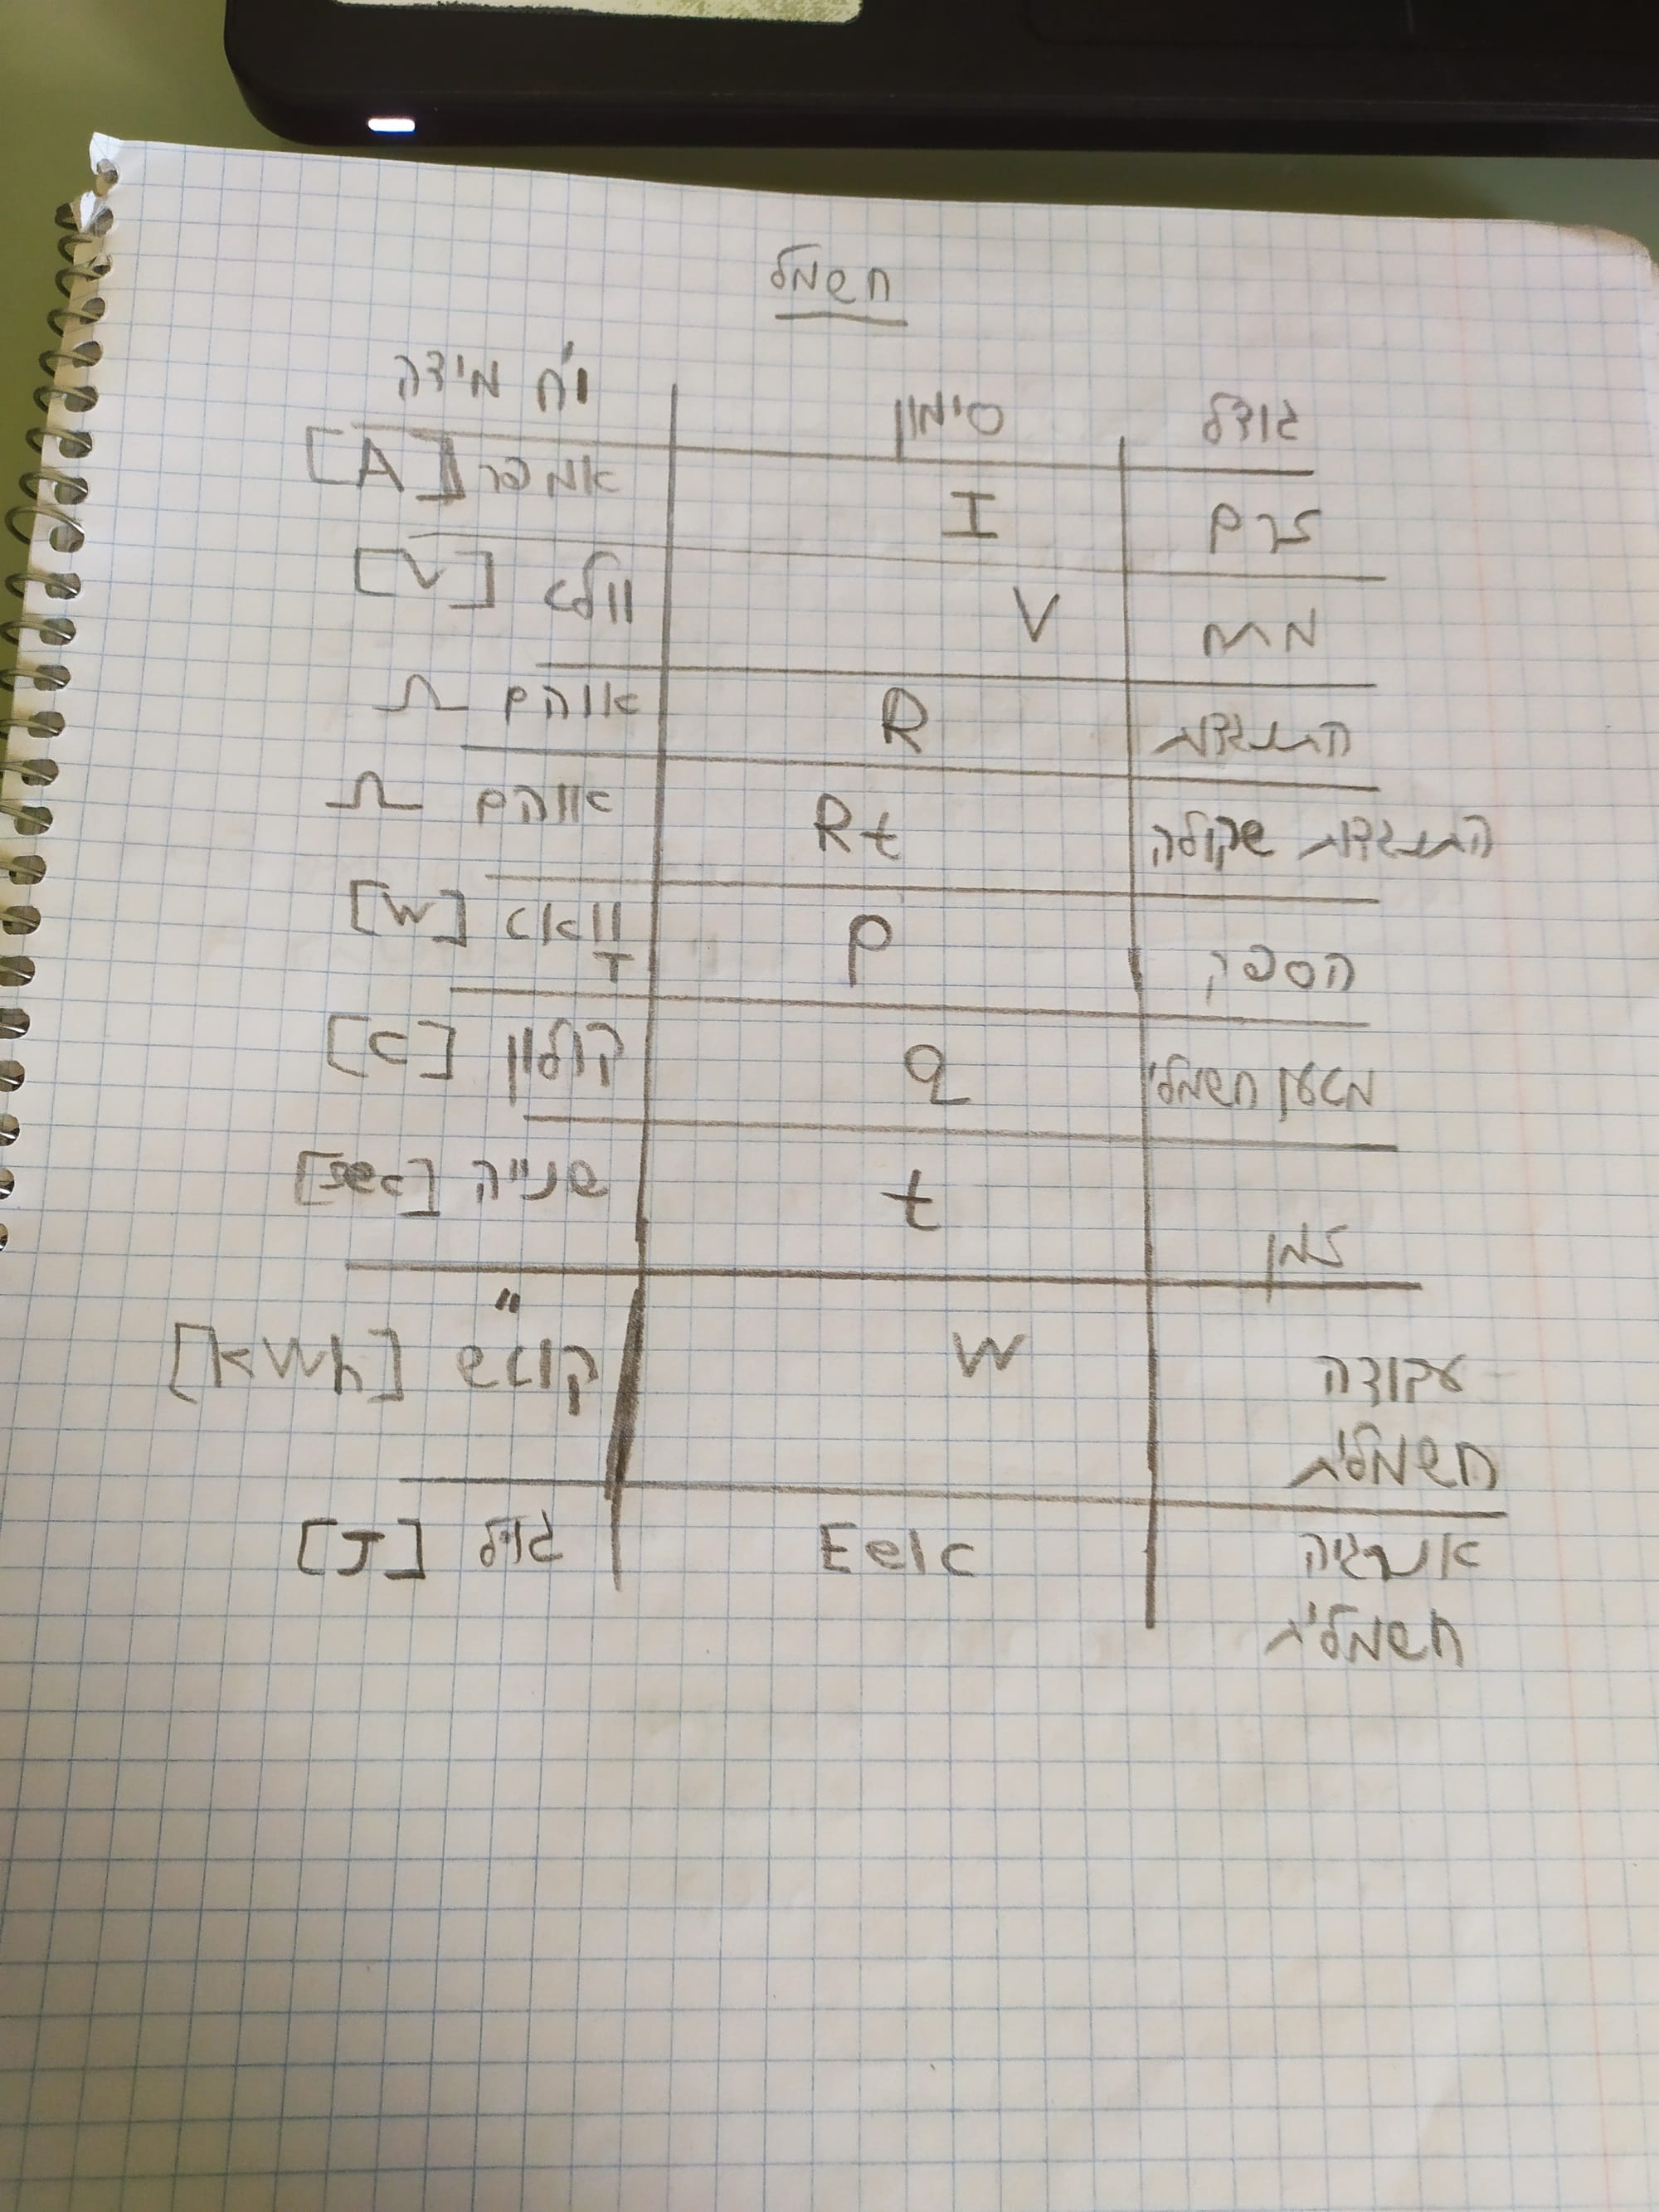 חשמל
גודל סימון יח' מידה
זרם I אמפר [A]
מתח V וולט [V]
התנגדות R אוהם Ω
התנגדות שקולה Rt אווהם Ω
הספק P וואט [W]
מטען חשמלי q קולון [C]
זמן t שנייה [sec]
עבודה W קוט"ש [kWh]
חשמלית
אנרגיה Eelc גול [J]
חשמלית